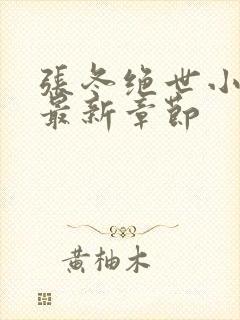 張冬绝世小
最新章節
黄柚木